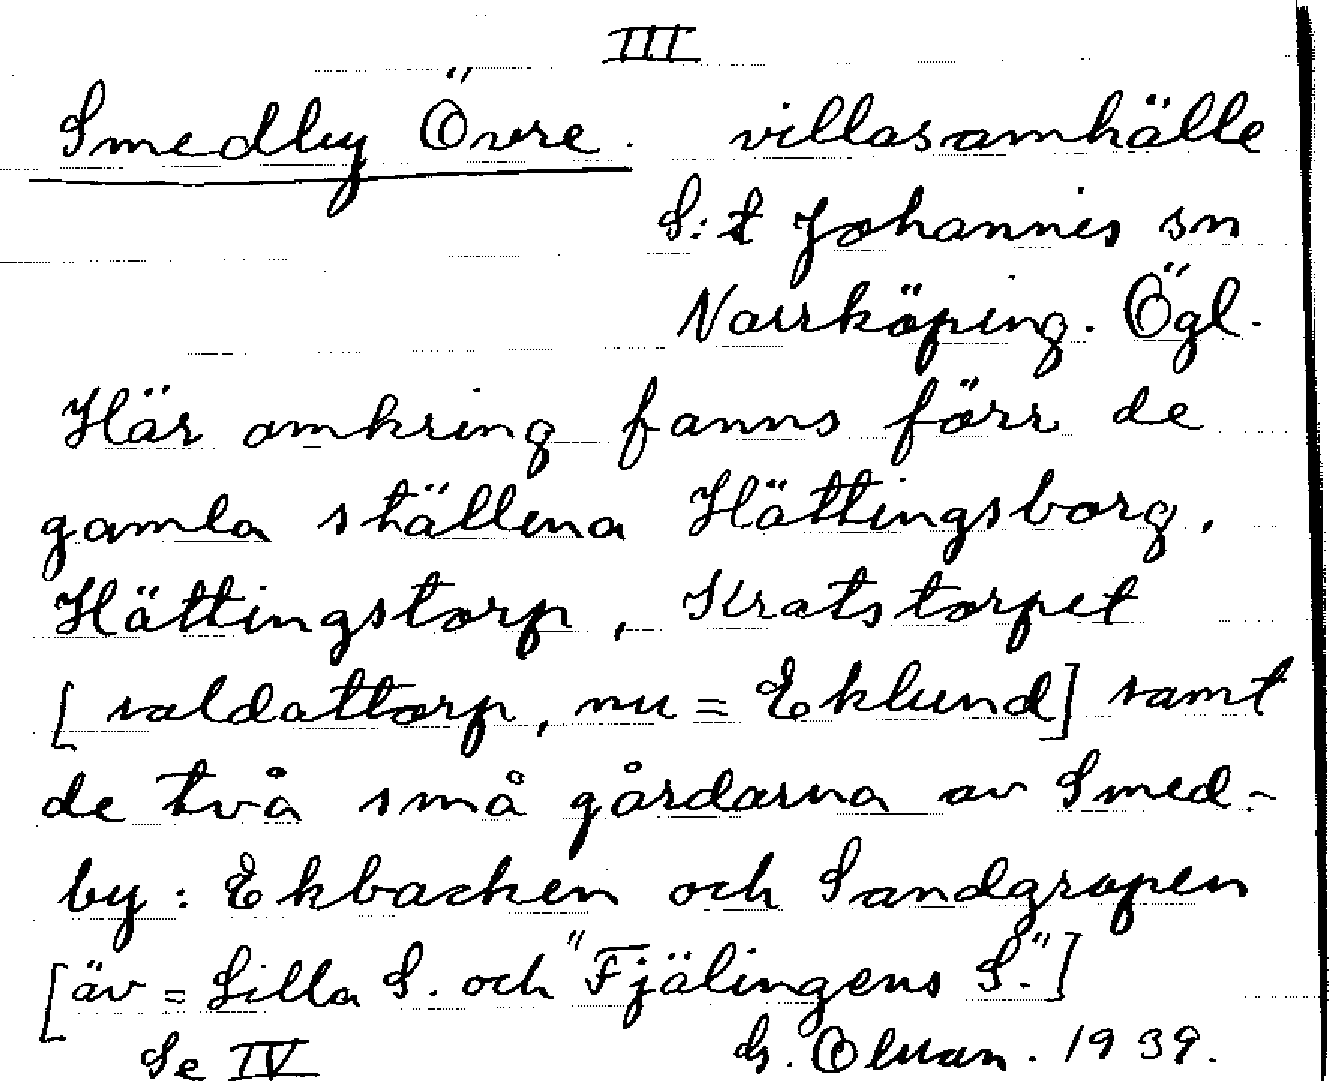 III
Smedby Övre. villasamhälle
S:t Johannis sn
Norrköping. Ögl.
Här omkring fanns förr de
gamla ställena Hättingsborg,
Hättingstorp, Kratstorpet
[soldattorp, nu = Eklund] samt
de två små gårdarna av Smed-
by: Ekbacken och Sandgropen
[äv = Lilla S. och "Fjälingens S."]
Se IV G. . 1939.